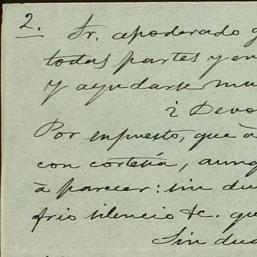 2.
Sr. apoderado g
todas partes y en
y ayudarse mu
¿ Devo
Por supuesto, que a
con cortesía, aunq
á parecer: sin du
frio silencio &c. que
Sin dud